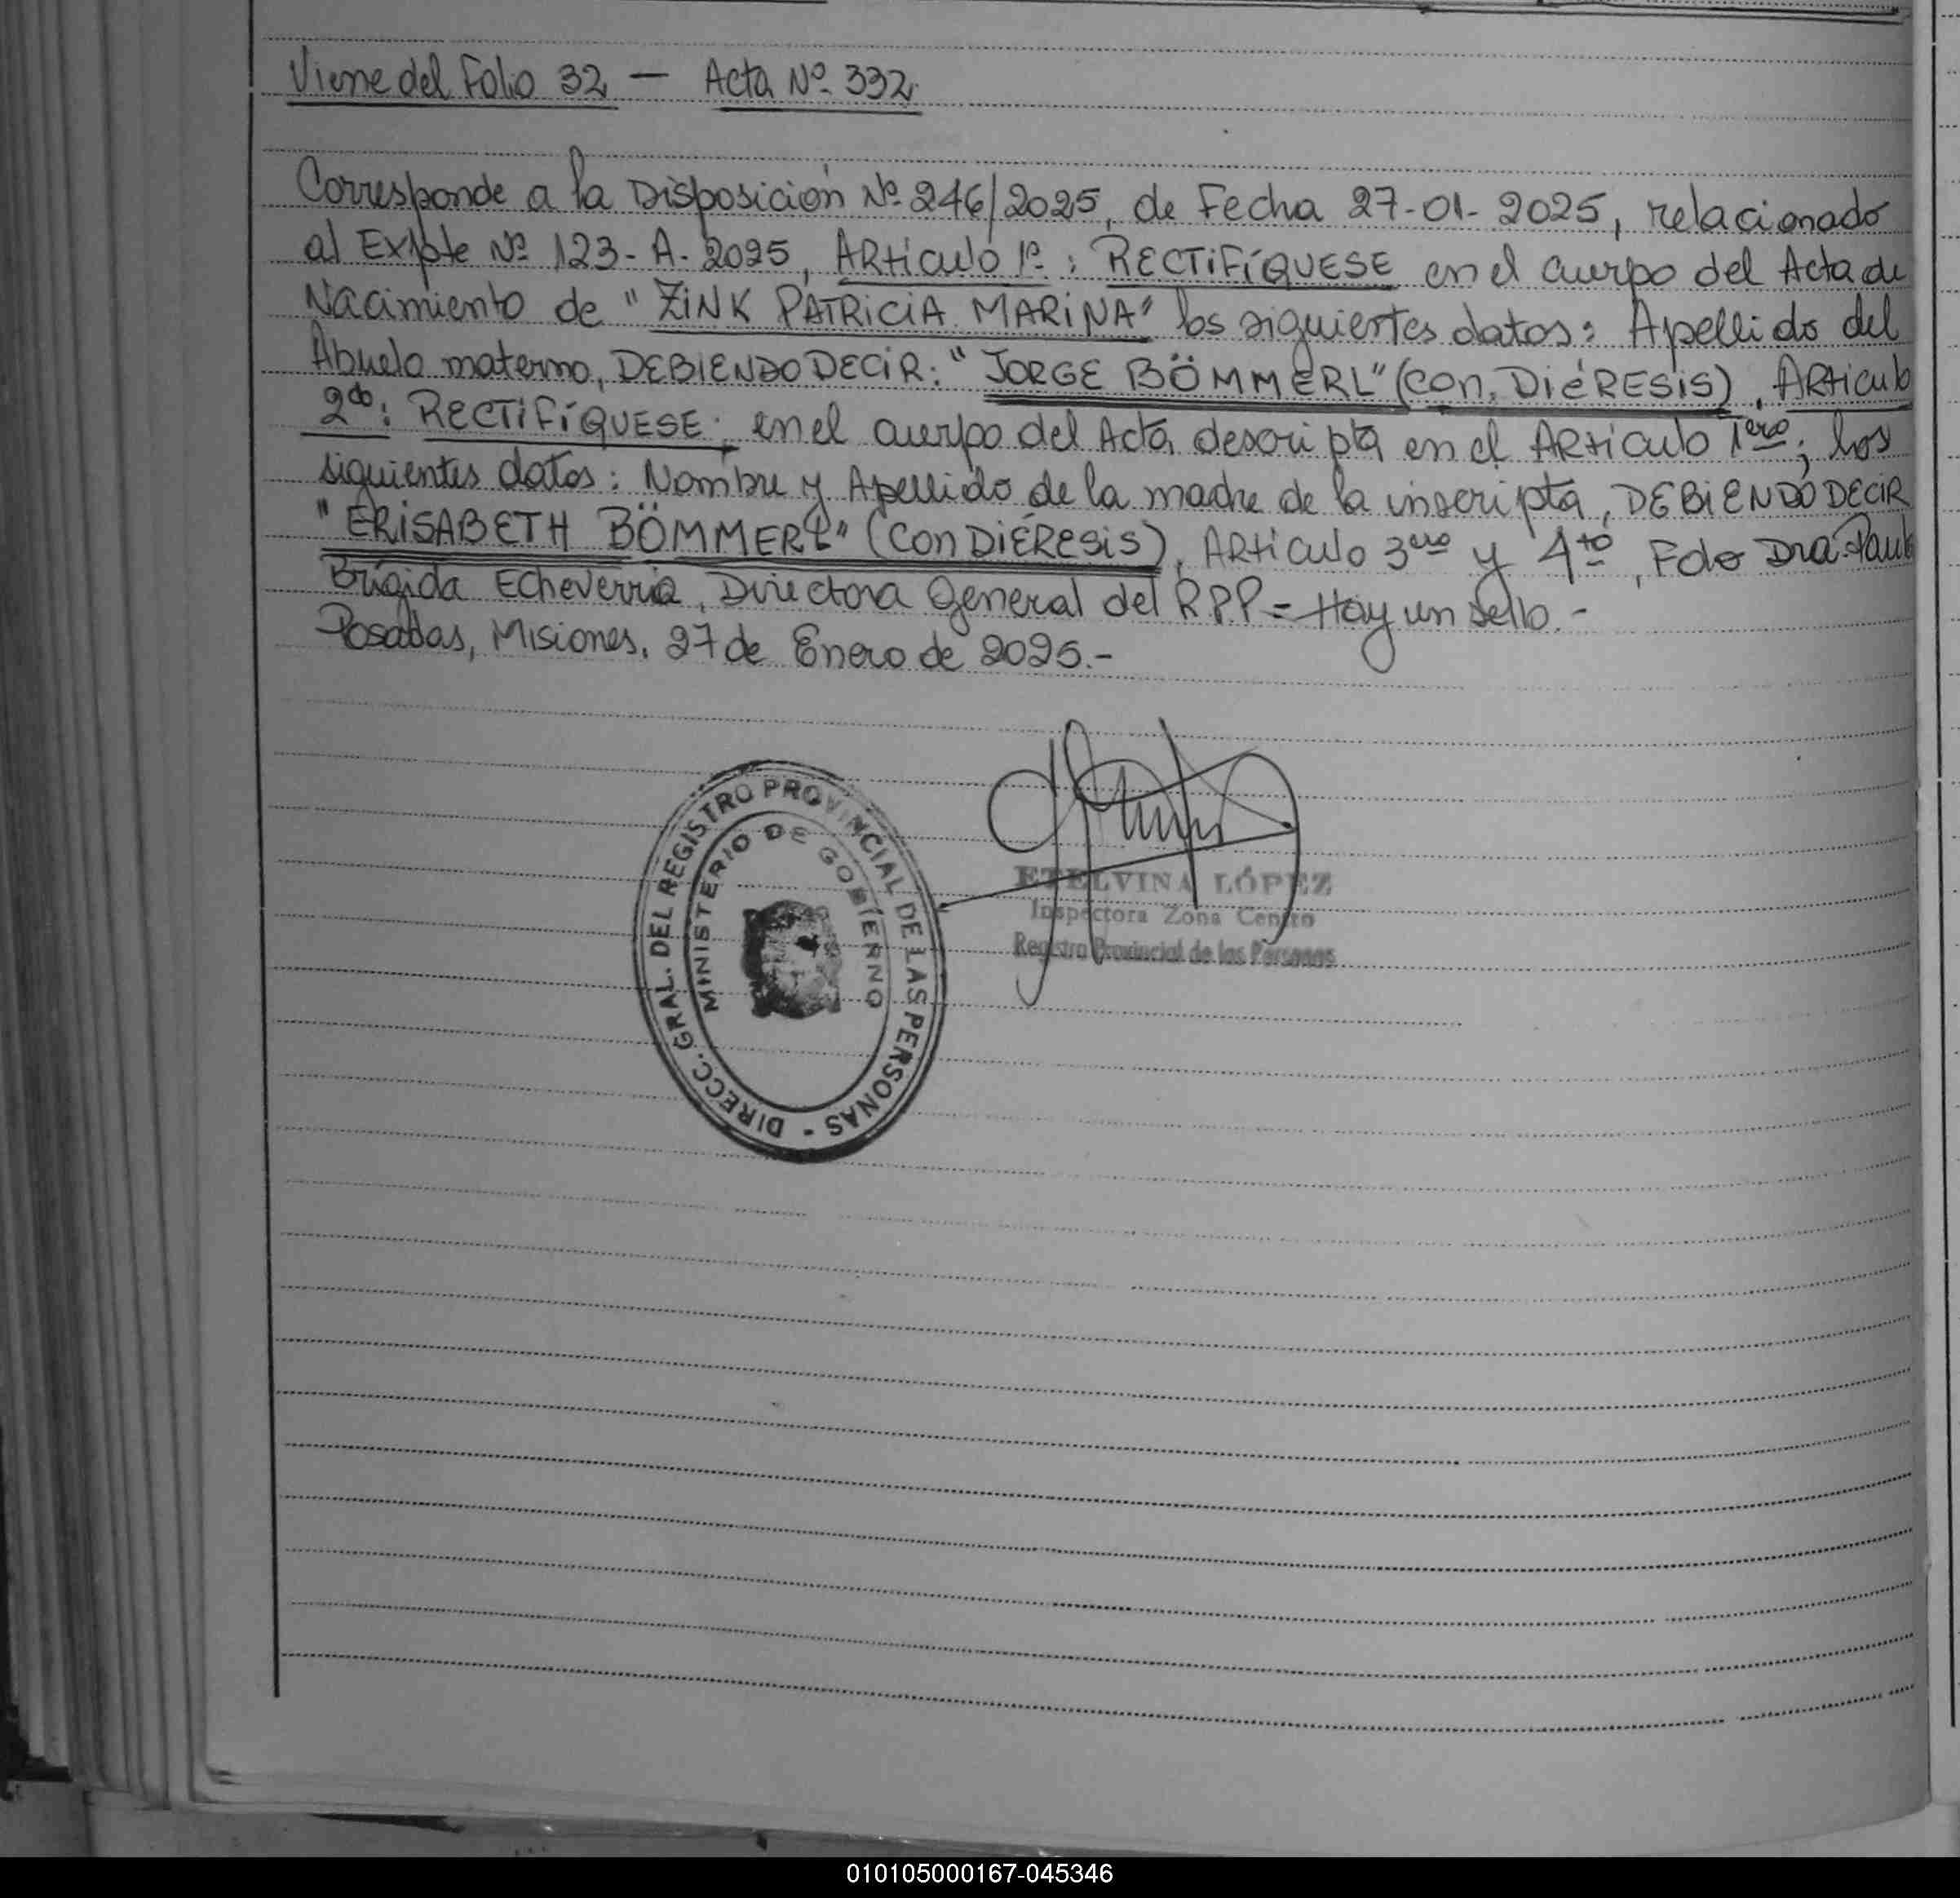 Viene del Folio 32 — Acta Nº 332.
Corresponde a la Disposición Nº 246/2025, de Fecha 27-01-2025, relacionado
al Expte Nº 123-A-2025, ARtículo 1º: RECTIFÍQUESE en el cuerpo del Acta de
Nacimiento de "ZINK PATRICIA MARINA" los siguientes datos: Apellido del
Abuelo materno, DEBIENDO DECIR: "JORGE BÖMMERL" (con DIÉRESIS), ARtículo
2do: RECTIFÍQUESE: en el cuerpo del Acta descripta en el ARtículo 1ero; los
siguientes datos: Nombre y Apellido de la madre de la inscripta, DEBIENDO DECIR
"ERISABETH BÖMMERL" (CON DIÉRESIS), ARtículo 3ero y 4to, Fdo Dra. Paula
Brígida Echeverria, Directora General del R.P.P = Hay un sello.-
Posadas, Misiones, 27 de Enero de 2025.-
DIRECC. GRAL. DEL REGISTRO PROVINCIAL DE LAS PERSONAS -
MINISTERIO DE GOBIERNO
ETELVINA LÓPEZ
Inspectora Zona Centro
Registro Provincial de las Personas
010105000167-045346